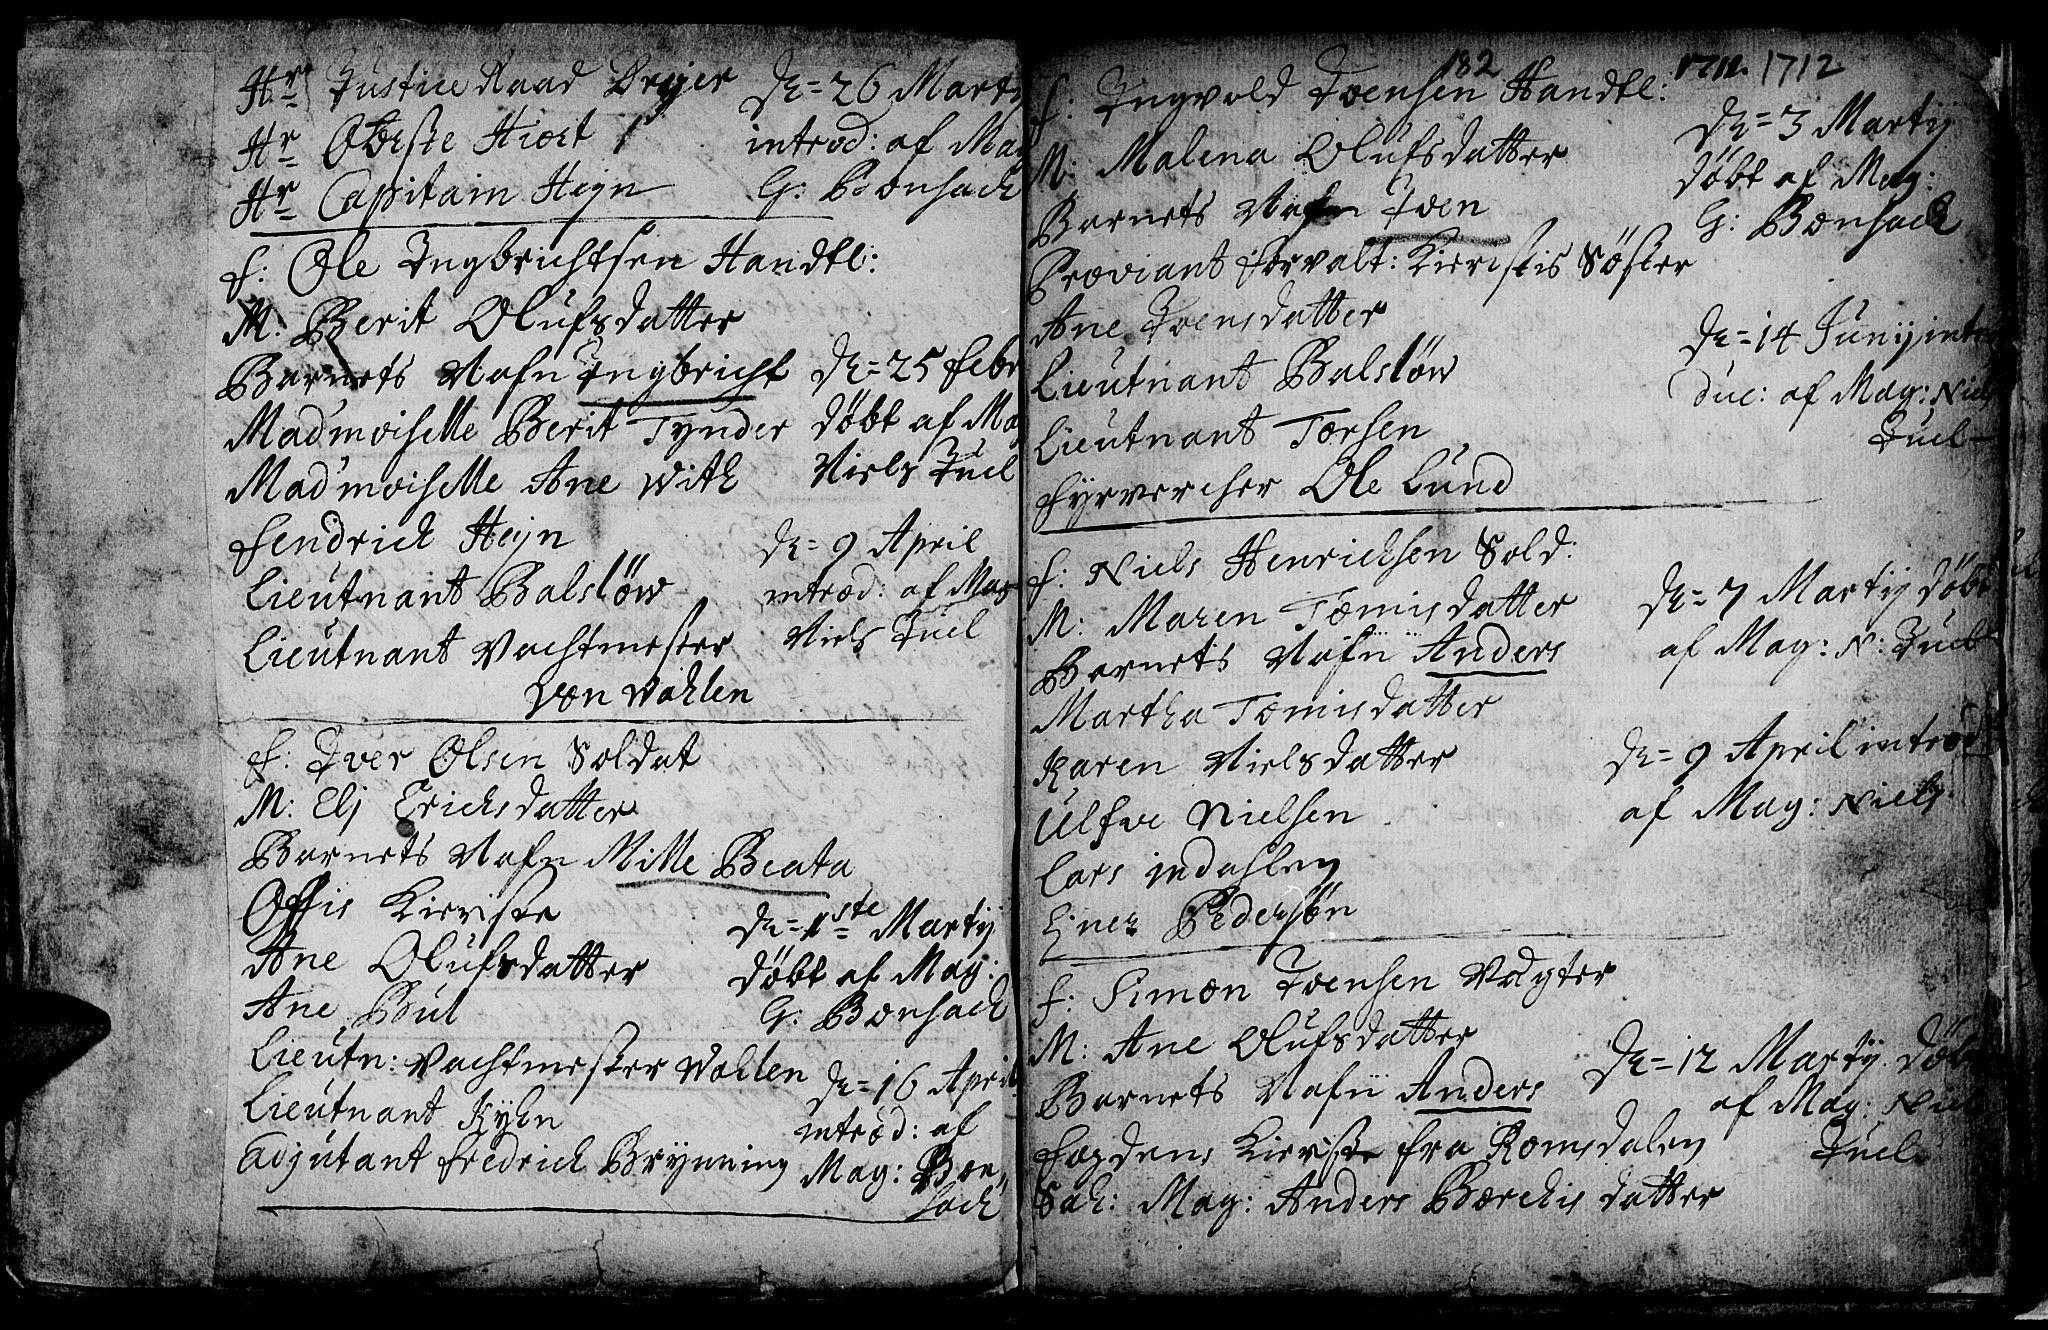 Hr Justice Raad Drejer
Hr Oberste Hiort
Hr Capitain Heyn
D. = 26 Marty
introd: af Mag
G: Bonsach
f: Ole Ingbrichtsen Handtl:
M. Berit Olufsdatter
Barnets Nafn Ingbricht
Madmoiselle Berit Tynder
Madmoiselle Ane With
Fendrich Heyn
Lieutnant Balslöw
Lieutnant Vachtmester
von Wahlen
D. = 25 Febr
döbt af Mag
Niels Juel
D. = 9 April
introd: af Mag
Niels Juel
f: Iver Olsen Soldat
M: Elj Erichsdatter
Barnets Nafn Mille Beata
Offis Kieriste
Ane Olufsdatter
Ane Bul
Lieutn: Vachtmester Wahlen
Lieutnant Kyhn
Adjutant Fredrich Brynning
D. = 1ste Martij
döbt af Mag:
G: Bonsach
D. = 16 April
introd: af
Mag: Bon,,
sach
182 1712. 1712
f: Ingvold Joensen Handtl:
M: Malena Olufsdatter
Barnets Nafn Joen
Proviant forvalt: Kieristis Söster
Ane Joensdatter
Lieutnant Balslöw
Lieutnant Torsen
Fyrvercher Ole Lund
D. = 3 Martij
döbt af Mag:
G: Bonsach
D. = 14 Junij intro
duc: af Mag: Niels
Juel
f: Niels Henrichsen Sold:
M: Maren Tomisdatter
Barnets Nafn Anders
Martha Tomisdatter
Karen Nielsdatter
Ulfve Nielsen
Lars indahlen
Ejner Pedersön
D. = 7 Martij döbt
af Mag: N: Juel
D. = 9 April introd
af Mag: Niels
f: Simon Joensen Vagter
M: Ane Olufsdatter
Barnets Nafn Anders
Fogdens Kieriste fra Romsdalen
Sah: Mag: Anders Borchis datter
D. = 12 Martij. Döbt
af Mag: Niels
Juel